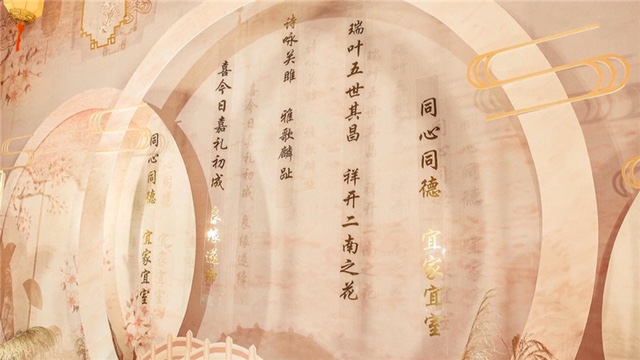 同心同德 宜家宜室
喜今日嘉礼初成 良缘遂缔
诗咏关雎 雅歌麟趾
瑞叶五世其昌 祥开二南之花
同心同德 宜家宜室